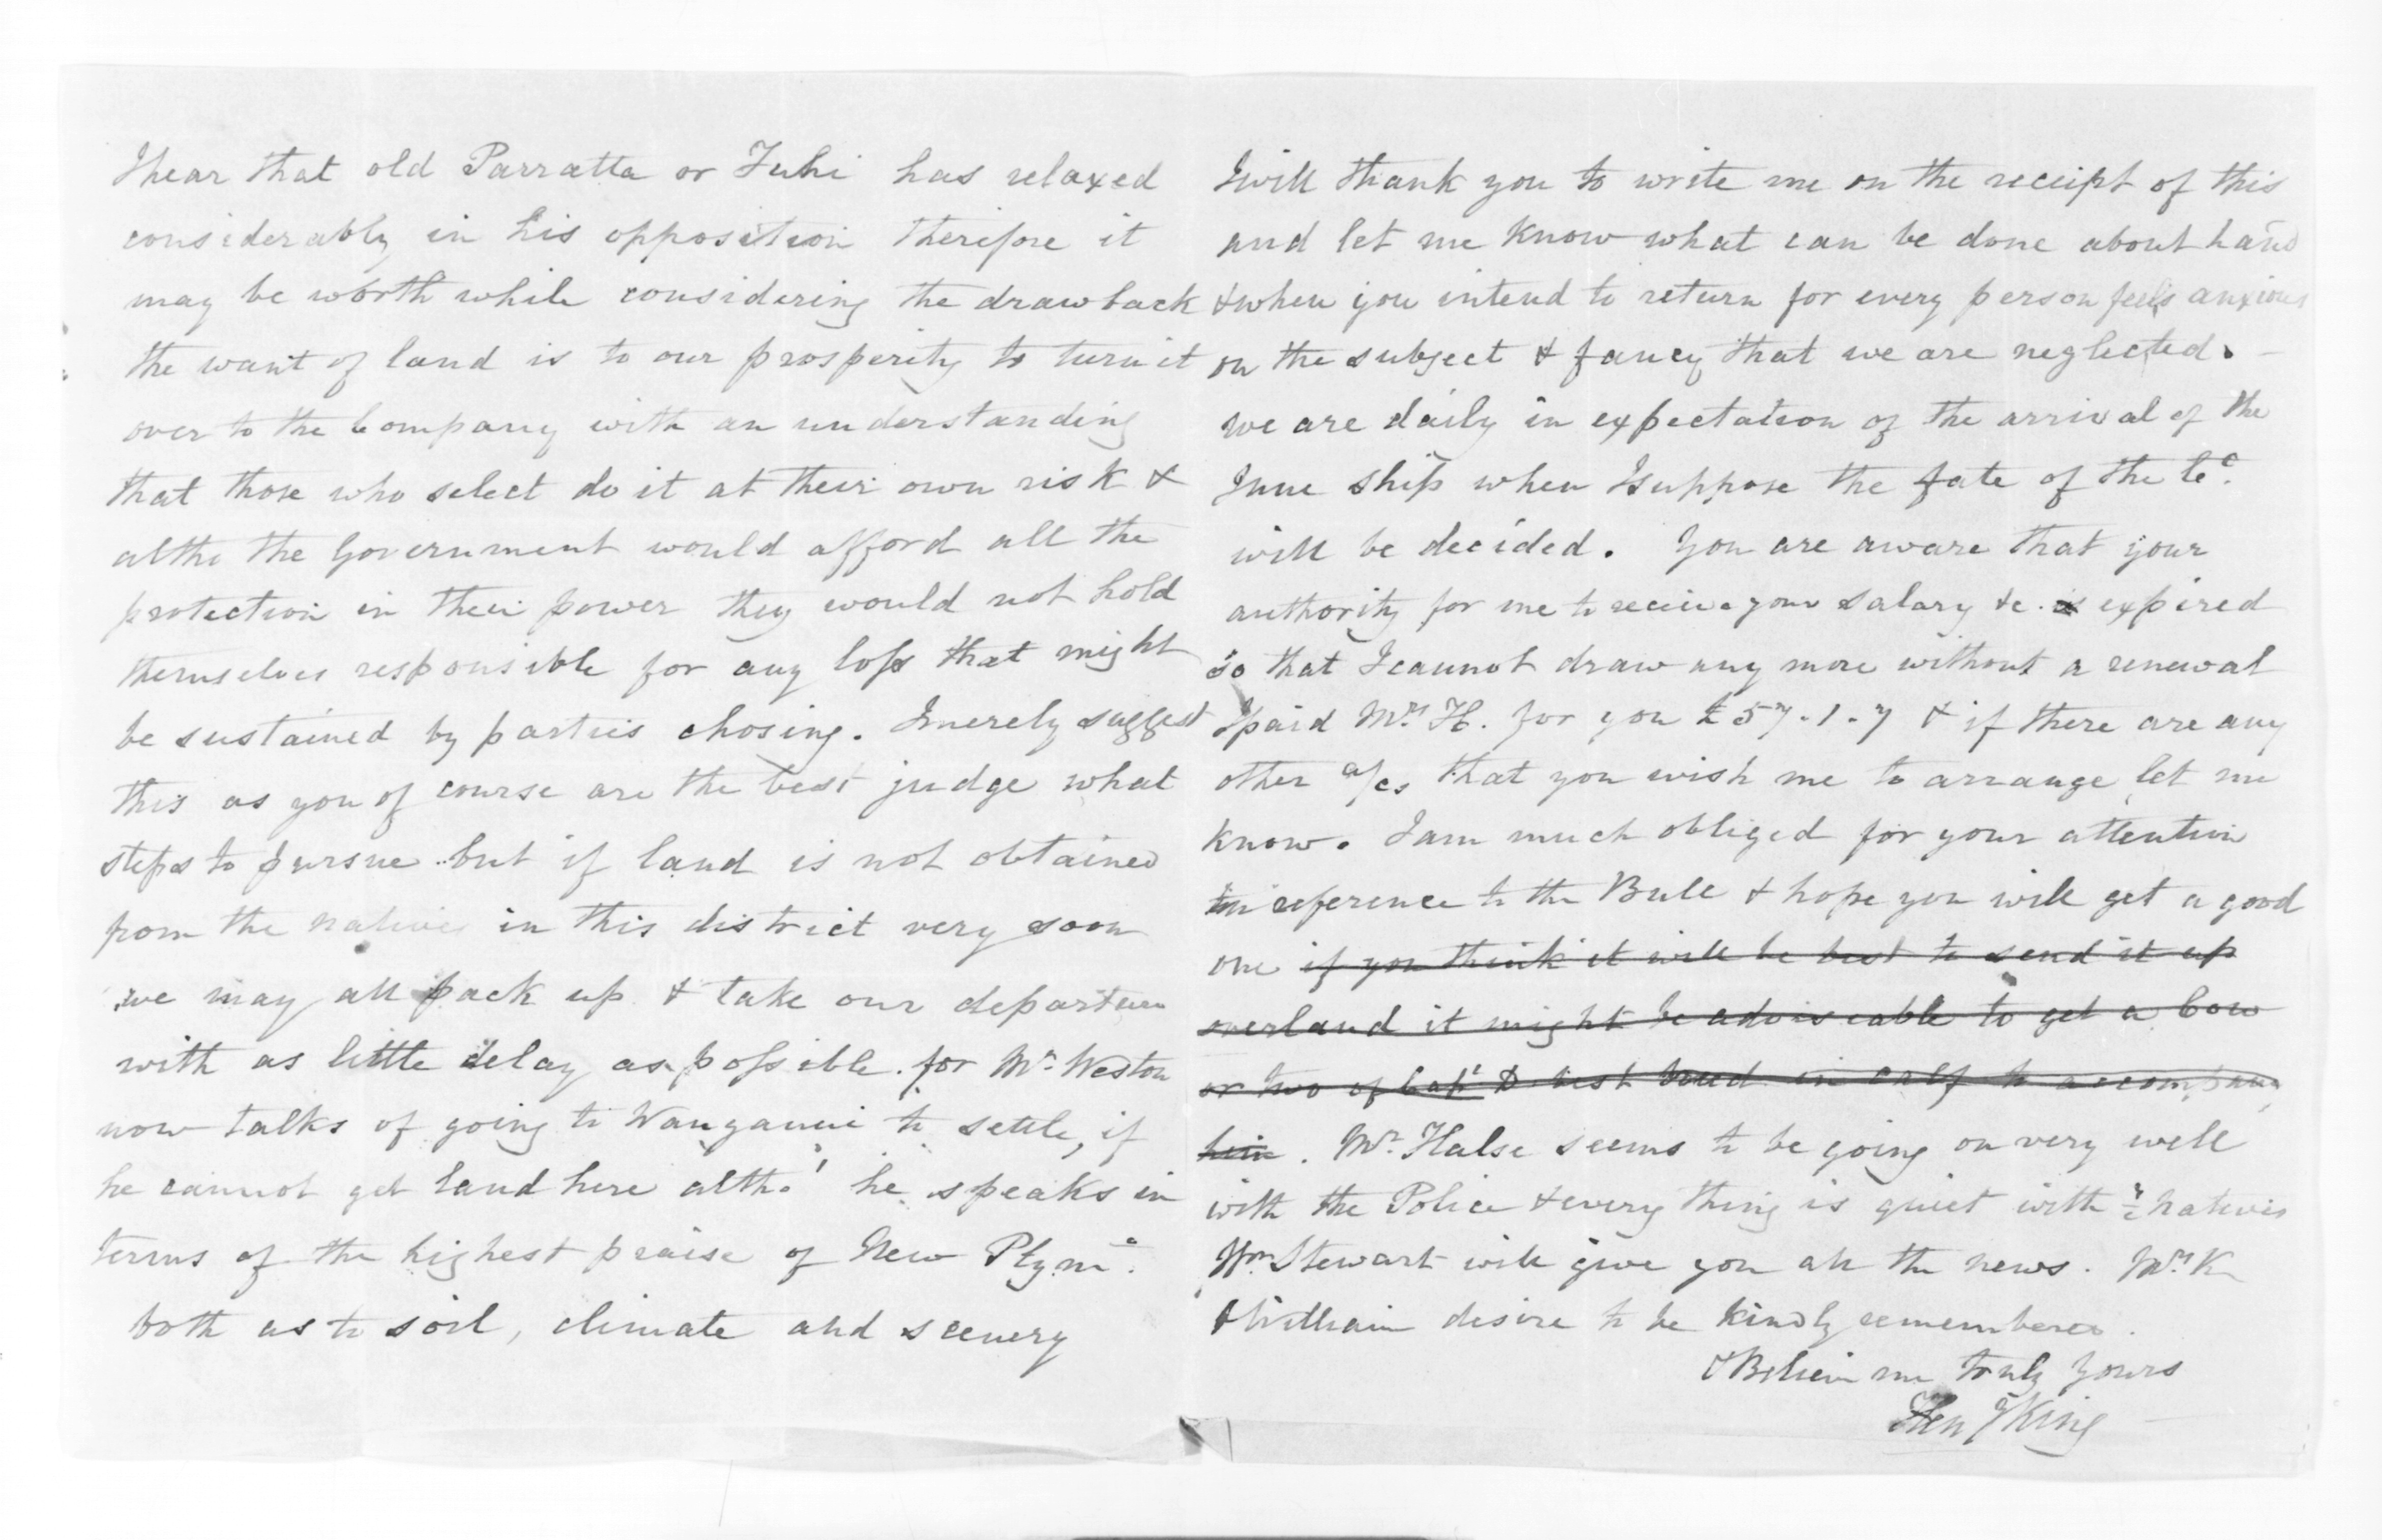 I hear that old Parratta or Tuhi has relaxed
considerably in his opposition therefore it
may be worth while considering the drawback
the want of land is to our prosperity to turn it
over to the Company with an understanding
that those who select do it at their own risk &
altho the Government would afford all the
protection in their power they would not hold
themselves responsible for any loss that might
be sustained by parties chosing. I merely suggest
this as you of course are the best judge what
steps to pursue but if land is not obtained
from the natives in this district very soon
we may all pack up & take our departure
with as little delay as possible. for Mr. Weston
now talks of going to Wanganui to settle, if
he cannot get land here altho' he speaks in
terms of the highest praise of New Plymo.
both as to soil, climate and scenery
I will thank you to write me on the receipt of this
and let me know what can be done about land
& when you intend to return for every person feels anxious
on the subject & fancy that we are neglected. -
we are daily in expectation of the arrival of the
June ship when I suppose the fate of the Co.
will be decided. You are aware that your
authority for me to receive your salary &c. is expired
so that I cannot draw any more without a renewal
I paid Mrs. H. for you £57.1.7 & if there are any
other a/cs that you wish me to arrange let me
know. I am much obliged for your attention
in reference to the Bull & hope you will get a good
one if you think it will be best to send it up
overland it might be adviseable to get a Cow
or two of Capt D best breed in calf to accompany
him. Mr. Halse seems to be going on very well
with the Police & every thing is quiet with ye natives
Wm Stewart will give you all the news. Mrs K
& William desire to be kindly remembered.
& Believe me truly yours
Hen J King